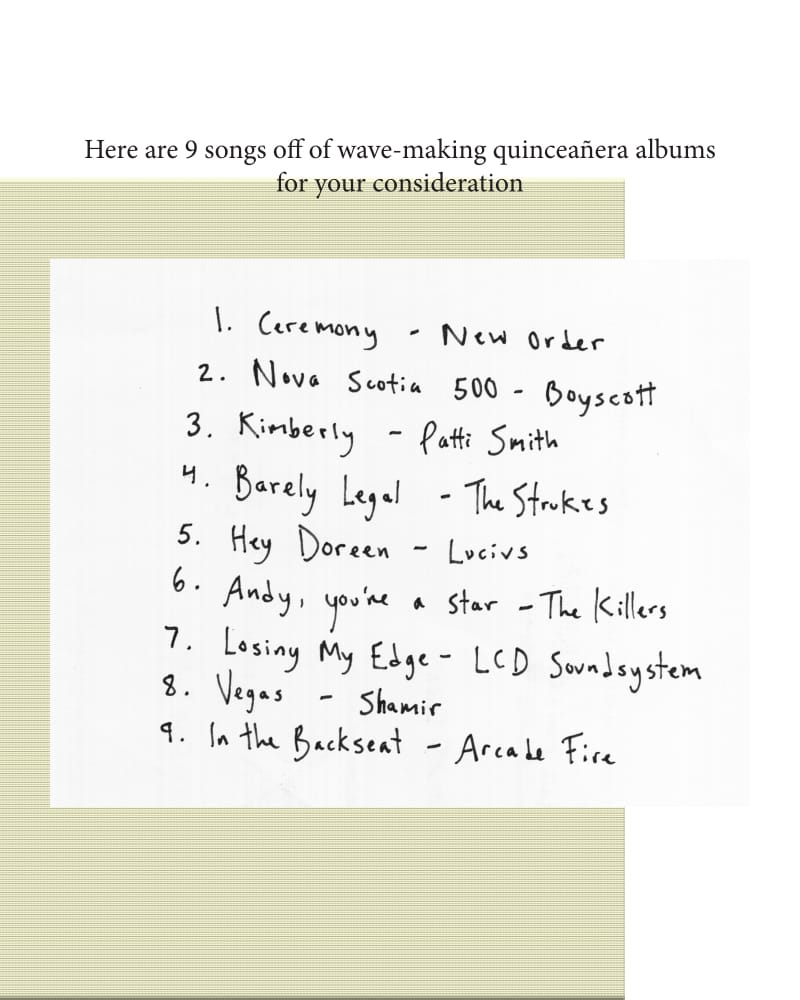 Here are 9 songs off of wave-making quinceañera albums
for your consideration
1. Ceremony - New Order
2. Nova Scotia 500 - Boyscott
3. Kimberly - Patti Smith
4. Barely Legal - The Strokes
5. Hey Doreen - Lucius
6. Andy, you're a star - The Killers
7. Losing My Edge - LCD Soundsystem
8. Vegas - Shamir
9. In the Backseat - Arcade Fire